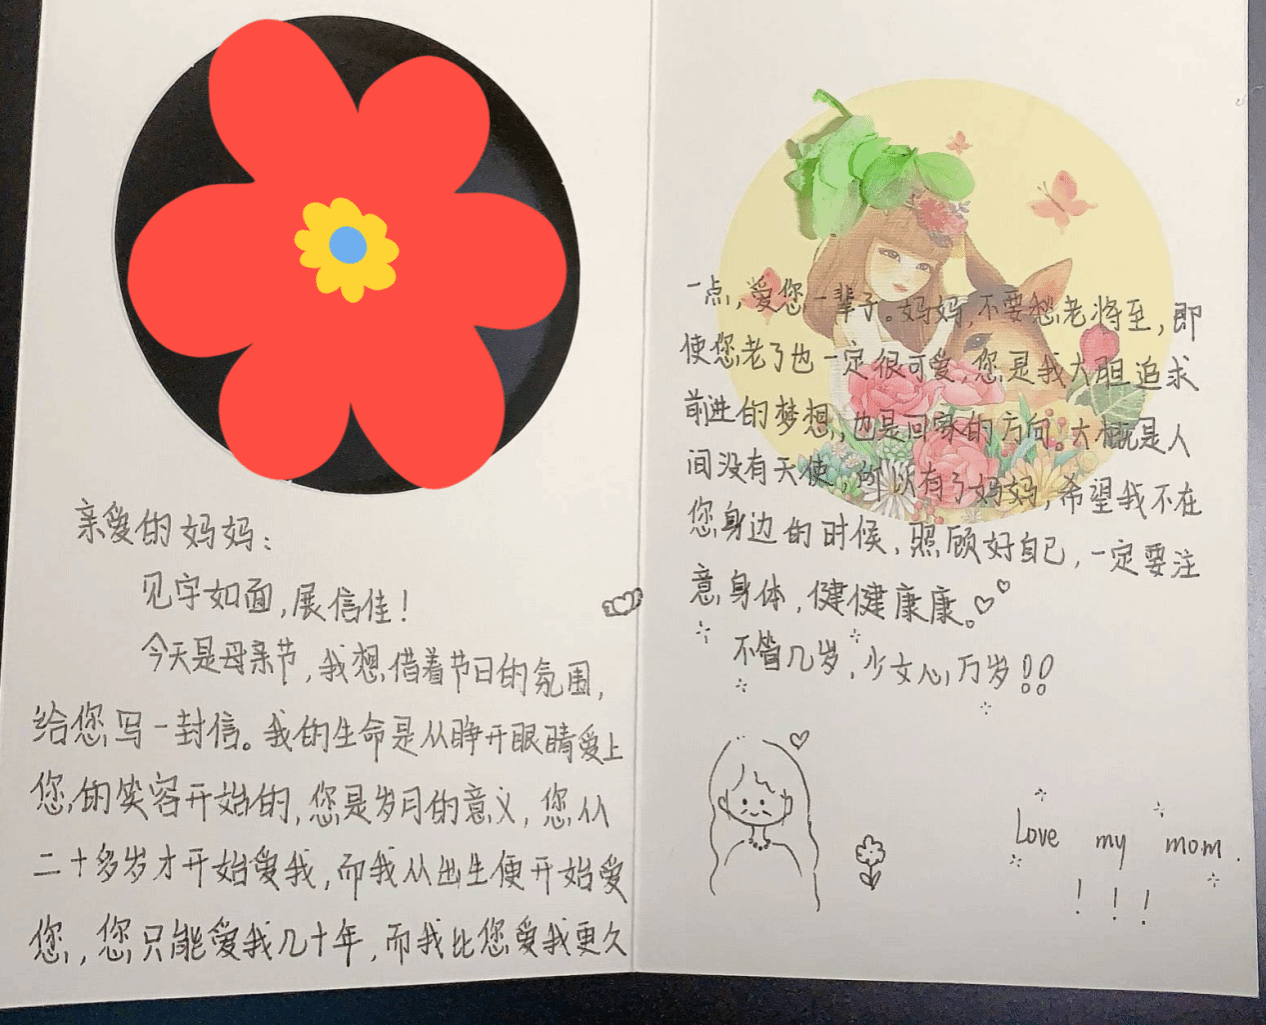 亲爱的妈妈：
见字如面，展信佳！
今天是母亲节，我想借着节日的氛围，
给您写一封信。我的生命是从睁开眼睛爱上
您的笑容开始的，您是岁月的意义，您从
二十多岁才开始爱我，而我从出生便开始爱
您，您只能爱我几十年，而我比您爱我更久
一点，爱您一辈子。妈妈，不要愁老将至，即
使您老了也一定很可爱，您是我大胆追求
前进的梦想，也是回家的方向。大概是人
间没有天使，所以有了妈妈，希望我不在
您身边的时候，照顾好自己，一定要注
意身体，健健康康。
不管几岁，少女心万岁！！
Love my mom.
！！！